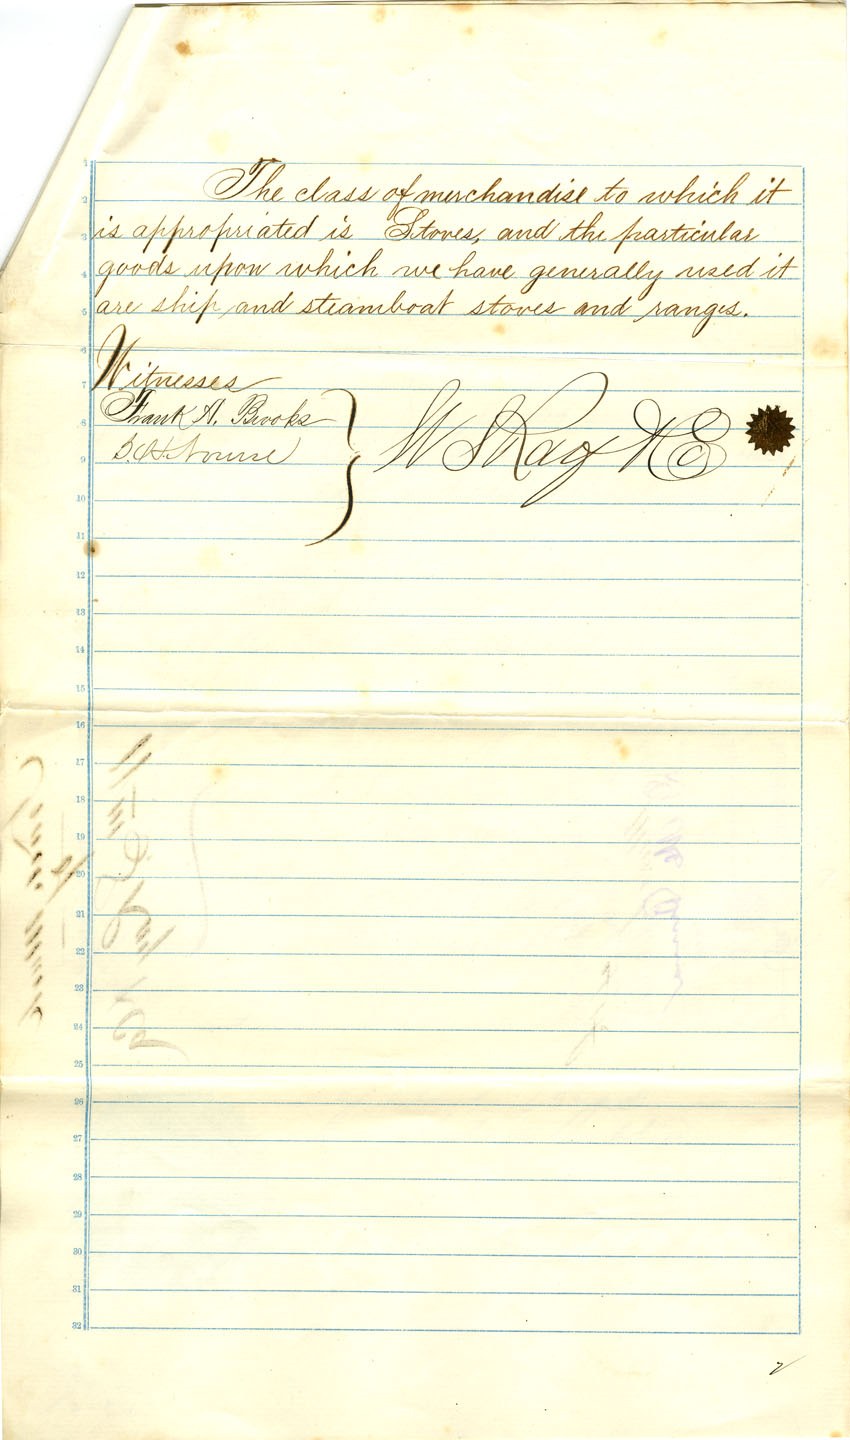 The class of merchandise to which it
is appropriated is Stoves, and the particular
goods upon which we have generally used it
are ship and steamboat stoves and ranges.
Witnesses
Frank A. Brooks
1
2
3
4
5
6
7
8
9
10
11
12
13
14
15
16
17
18
19
20
21
22
23
24
25
26
27
28
29
30
31
32